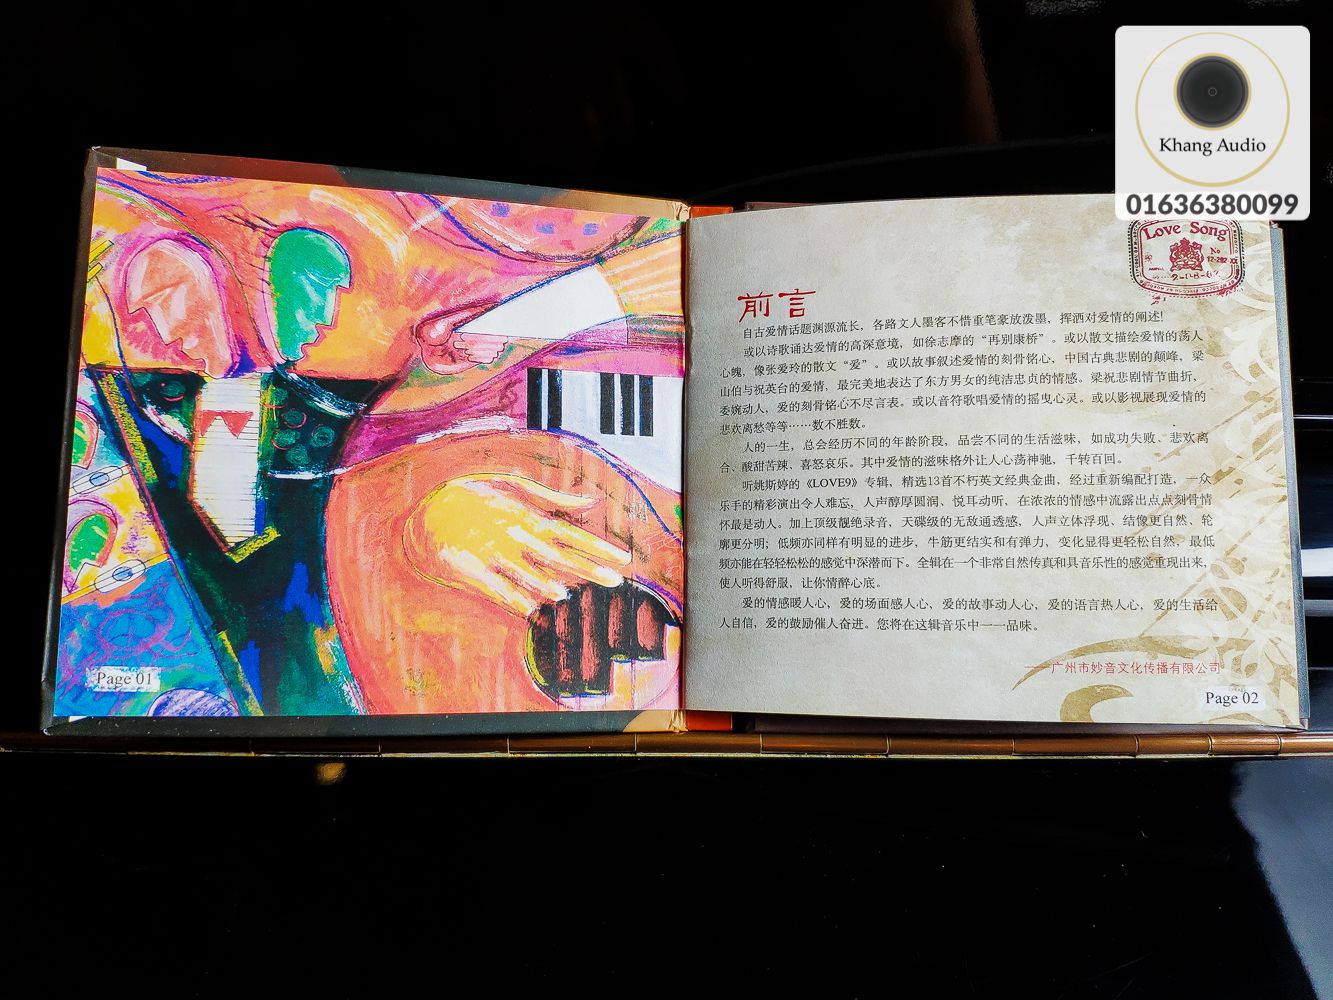 Khang Audio
01636380099
Love Song
前言
自古爱情话题渊源流长，各路文人墨客不惜重笔豪放泼墨，挥洒对爱情的阐述!
或以诗歌诵达爱情的高深意境，如徐志摩的“再别康桥”。或以散文描绘爱情的荡人
心魄，像张爱玲的散文“爱”。或以故事叙述爱情的刻骨铭心，中国古典悲剧的颠峰，梁
山伯与祝英台的爱情，最完美地表达了东方男女的纯洁忠贞的情感。梁祝悲剧情节曲折，
委婉动人，爱的刻骨铭心不尽言表。或以音符歌唱爱情的摇曳心灵。或以影视展现爱情的
悲欢离愁等等……数不胜数。
人的一生，总会经历不同的年龄阶段，品尝不同的生活滋味，如成功失败、悲欢离
合、酸甜苦辣、喜怒哀乐。其中爱情的滋味格外让人心荡神驰，千转百回。
听姚斯婷的《LOVE9》专辑，精选13首不朽英文经典金曲，经过重新编配打造，一众
乐手的精彩演出令人难忘，人声醇厚圆润、悦耳动听，在浓浓的情感中流露出点点刻骨情
怀最是动人。加上顶级靓绝录音，天碟级的无敌通透感，人声立体浮现、结像更自然、轮
廓更分明；低频亦同样有明显的进步，牛筋更结实和有弹力，变化显得更轻松自然，最低
频亦能在轻轻松松的感觉中深潜而下。全辑在一个非常自然传真和具音乐性的感觉重现出来，
使人听得舒服，让你情醉心底。
爱的情感暖人心，爱的场面感人心，爱的故事动人心，爱的语言热人心，爱的生活给
人自信，爱的鼓励催人奋进。您将在这辑音乐中一一品味。
——广州市妙音文化传播有限公司
Page 01
Page 02